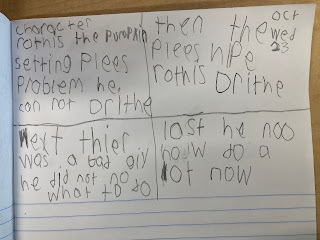 character
rothis the Pumpkin
setting Plees
Problem he.
can not Drithe
then the
Plees hlPe
rothis Drithe
oct
wed
23
Next thier
was a bad giy
he did not no
what to do
last he noo
how do a
lot now